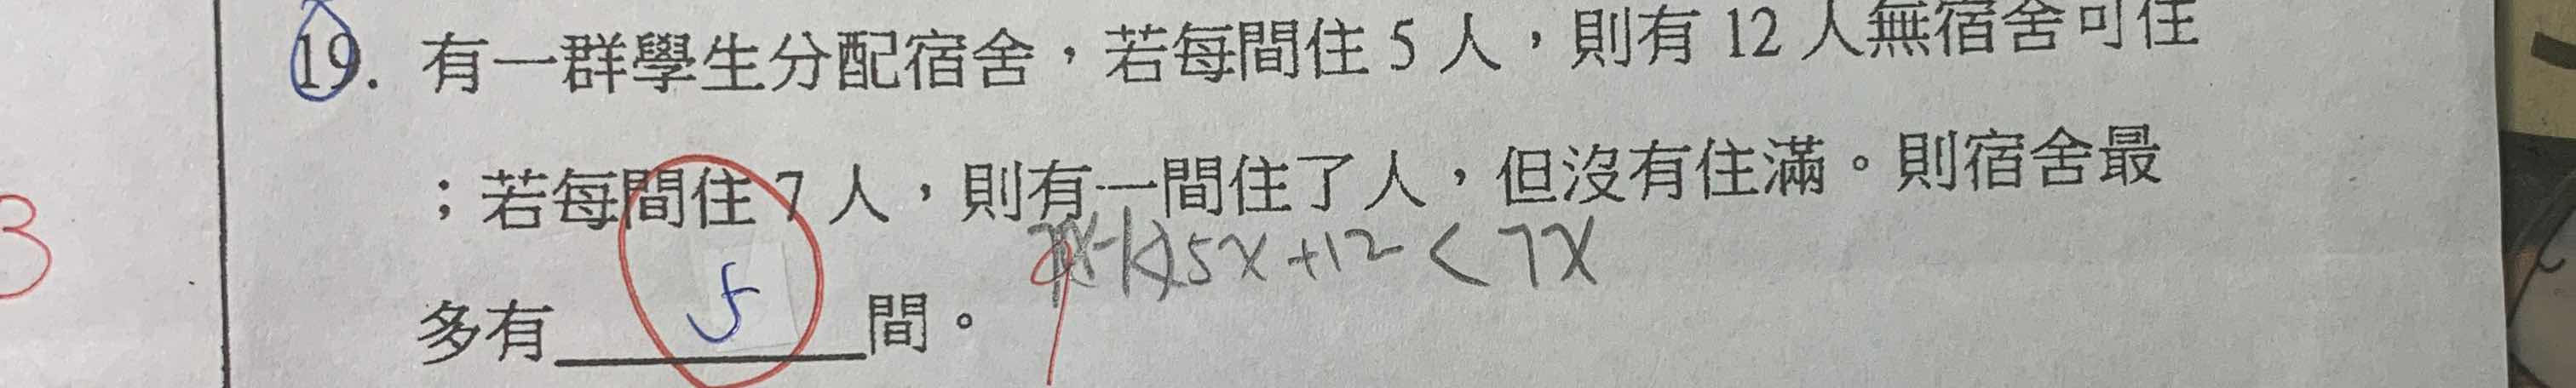 19. 有一群學生分配宿舍，若每間住 5 人，則有 12 人無宿舍可住
；若每間住 7 人，則有一間住了人，但沒有住滿。則宿舍最
5x+12<7x
多有 5 間。
3